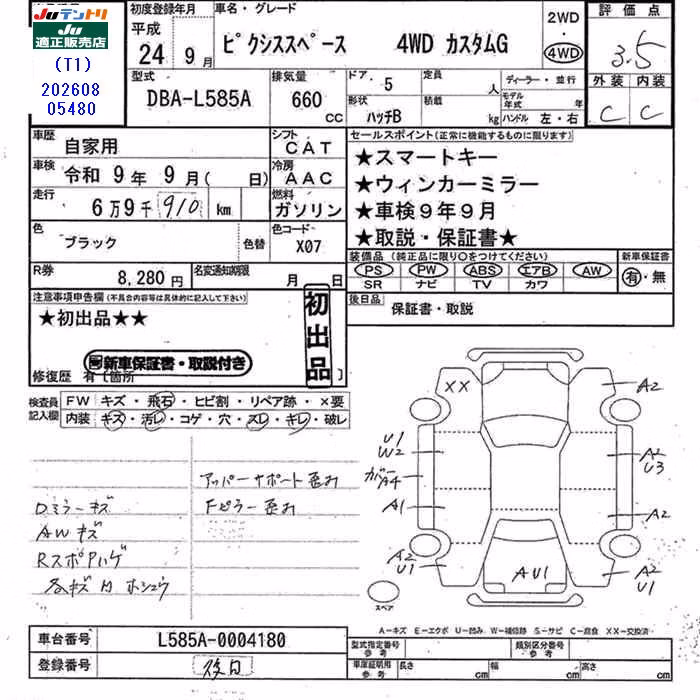 JUテントリ
JU適正販売店
(T1)
202608
05480
初度登録年月
平成
24年 9月
車名・グレード
ピクシススペース 4WD カスタムG
2WD
・
4WD
評価点
3.5
外装 内装
C C
型式
DBA-L585A
排気量
660
CC
ドア・ 5
形状
ハッチB
定員 人
積載 kg
ディーラー・並行
モデル年式 年
ハンドル 左・右
車歴
自家用
シフト
CAT
車検
令和 9年 9月( 日)
冷房
AAC
走行
6万9千910 km
燃料
ガソリン
色
ブラック
色替
色コード
X07
R券
8,280円
名変通知期限
月 日
セールスポイント(正常に機能するものに限ります)
★スマートキー
★ウィンカーミラー
★車検9年9月
★取説・保証書★
装備品(純正品に限り○をつけてください)
PS PW ABS エアB AW
SR ナビ TV カワ
新車保証書
有・無
後日品
保証書・取説
注意事項申告欄(不具合内容等は具体的に記入して下さい)
★初出品★★
初出品
新車保証書・取説付き
修復歴 有〔箇所 〕
検査員記入欄
FW キズ・飛石・ヒビ割・リペア跡・×要
内装 キズ・汚レ・コゲ・穴・スレ・キレ・破レ
アッパーサポート歪み
Dミラーキズ
Fピラー歪み
AWキズ
RスポPハゲ
各キズ凹ホシュウ
XX
A2
U1
W2
カバーワレ
A1
A2
U3
A2
A2
U1
AU1
A2
U1
スペア
A-キズ E-エクボ U-凹み W-補修跡 S-サビ C-腐食 XX-交換済
車台番号
L585A-0004180
登録番号
後日
型式指定番号
参考
類別区分番号
参考
車庫証明用
参考
長さ cm
幅 cm
高さ cm